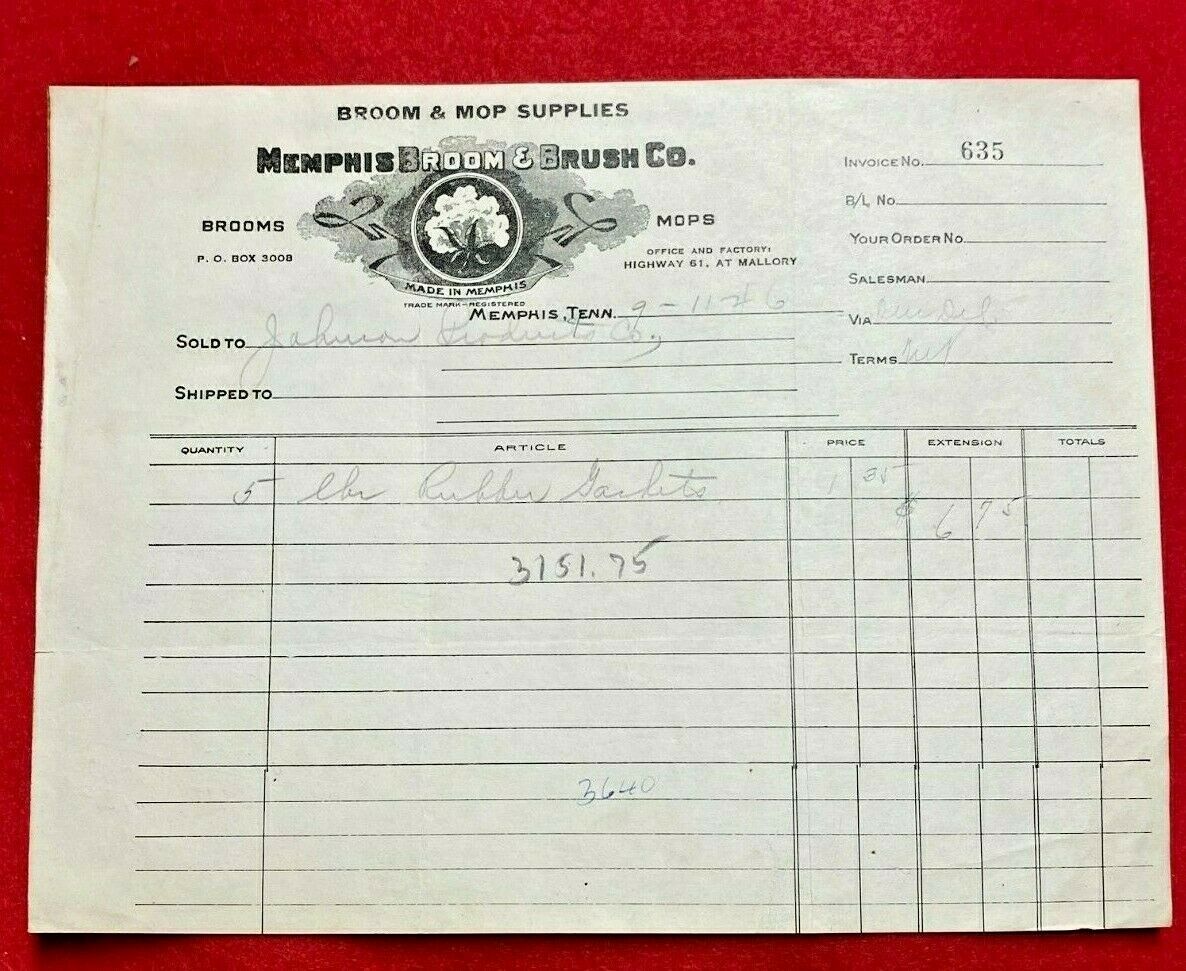 BROOM & MOP SUPPLIES
MEMPHIS BROOM & BRUSH CO.
INVOICE No. 635
B/L No.
BROOMS
MOPS
YOUR ORDER No.
P. O. BOX 3008
OFFICE AND FACTORY:
HIGHWAY 61, AT MALLORY
SALESMAN
MADE IN MEMPHIS
TRADE MARK-REGISTERED
MEMPHIS, TENN. 9-11-46
VIA Our Del.
SOLD TO Johnson Products Co.,
TERMS Net
SHIPPED TO
QUANTITY ARTICLE PRICE EXTENSION TOTALS
5 lbs Rubber Gaskets 1 35
$ 6 75
3151.75
3640